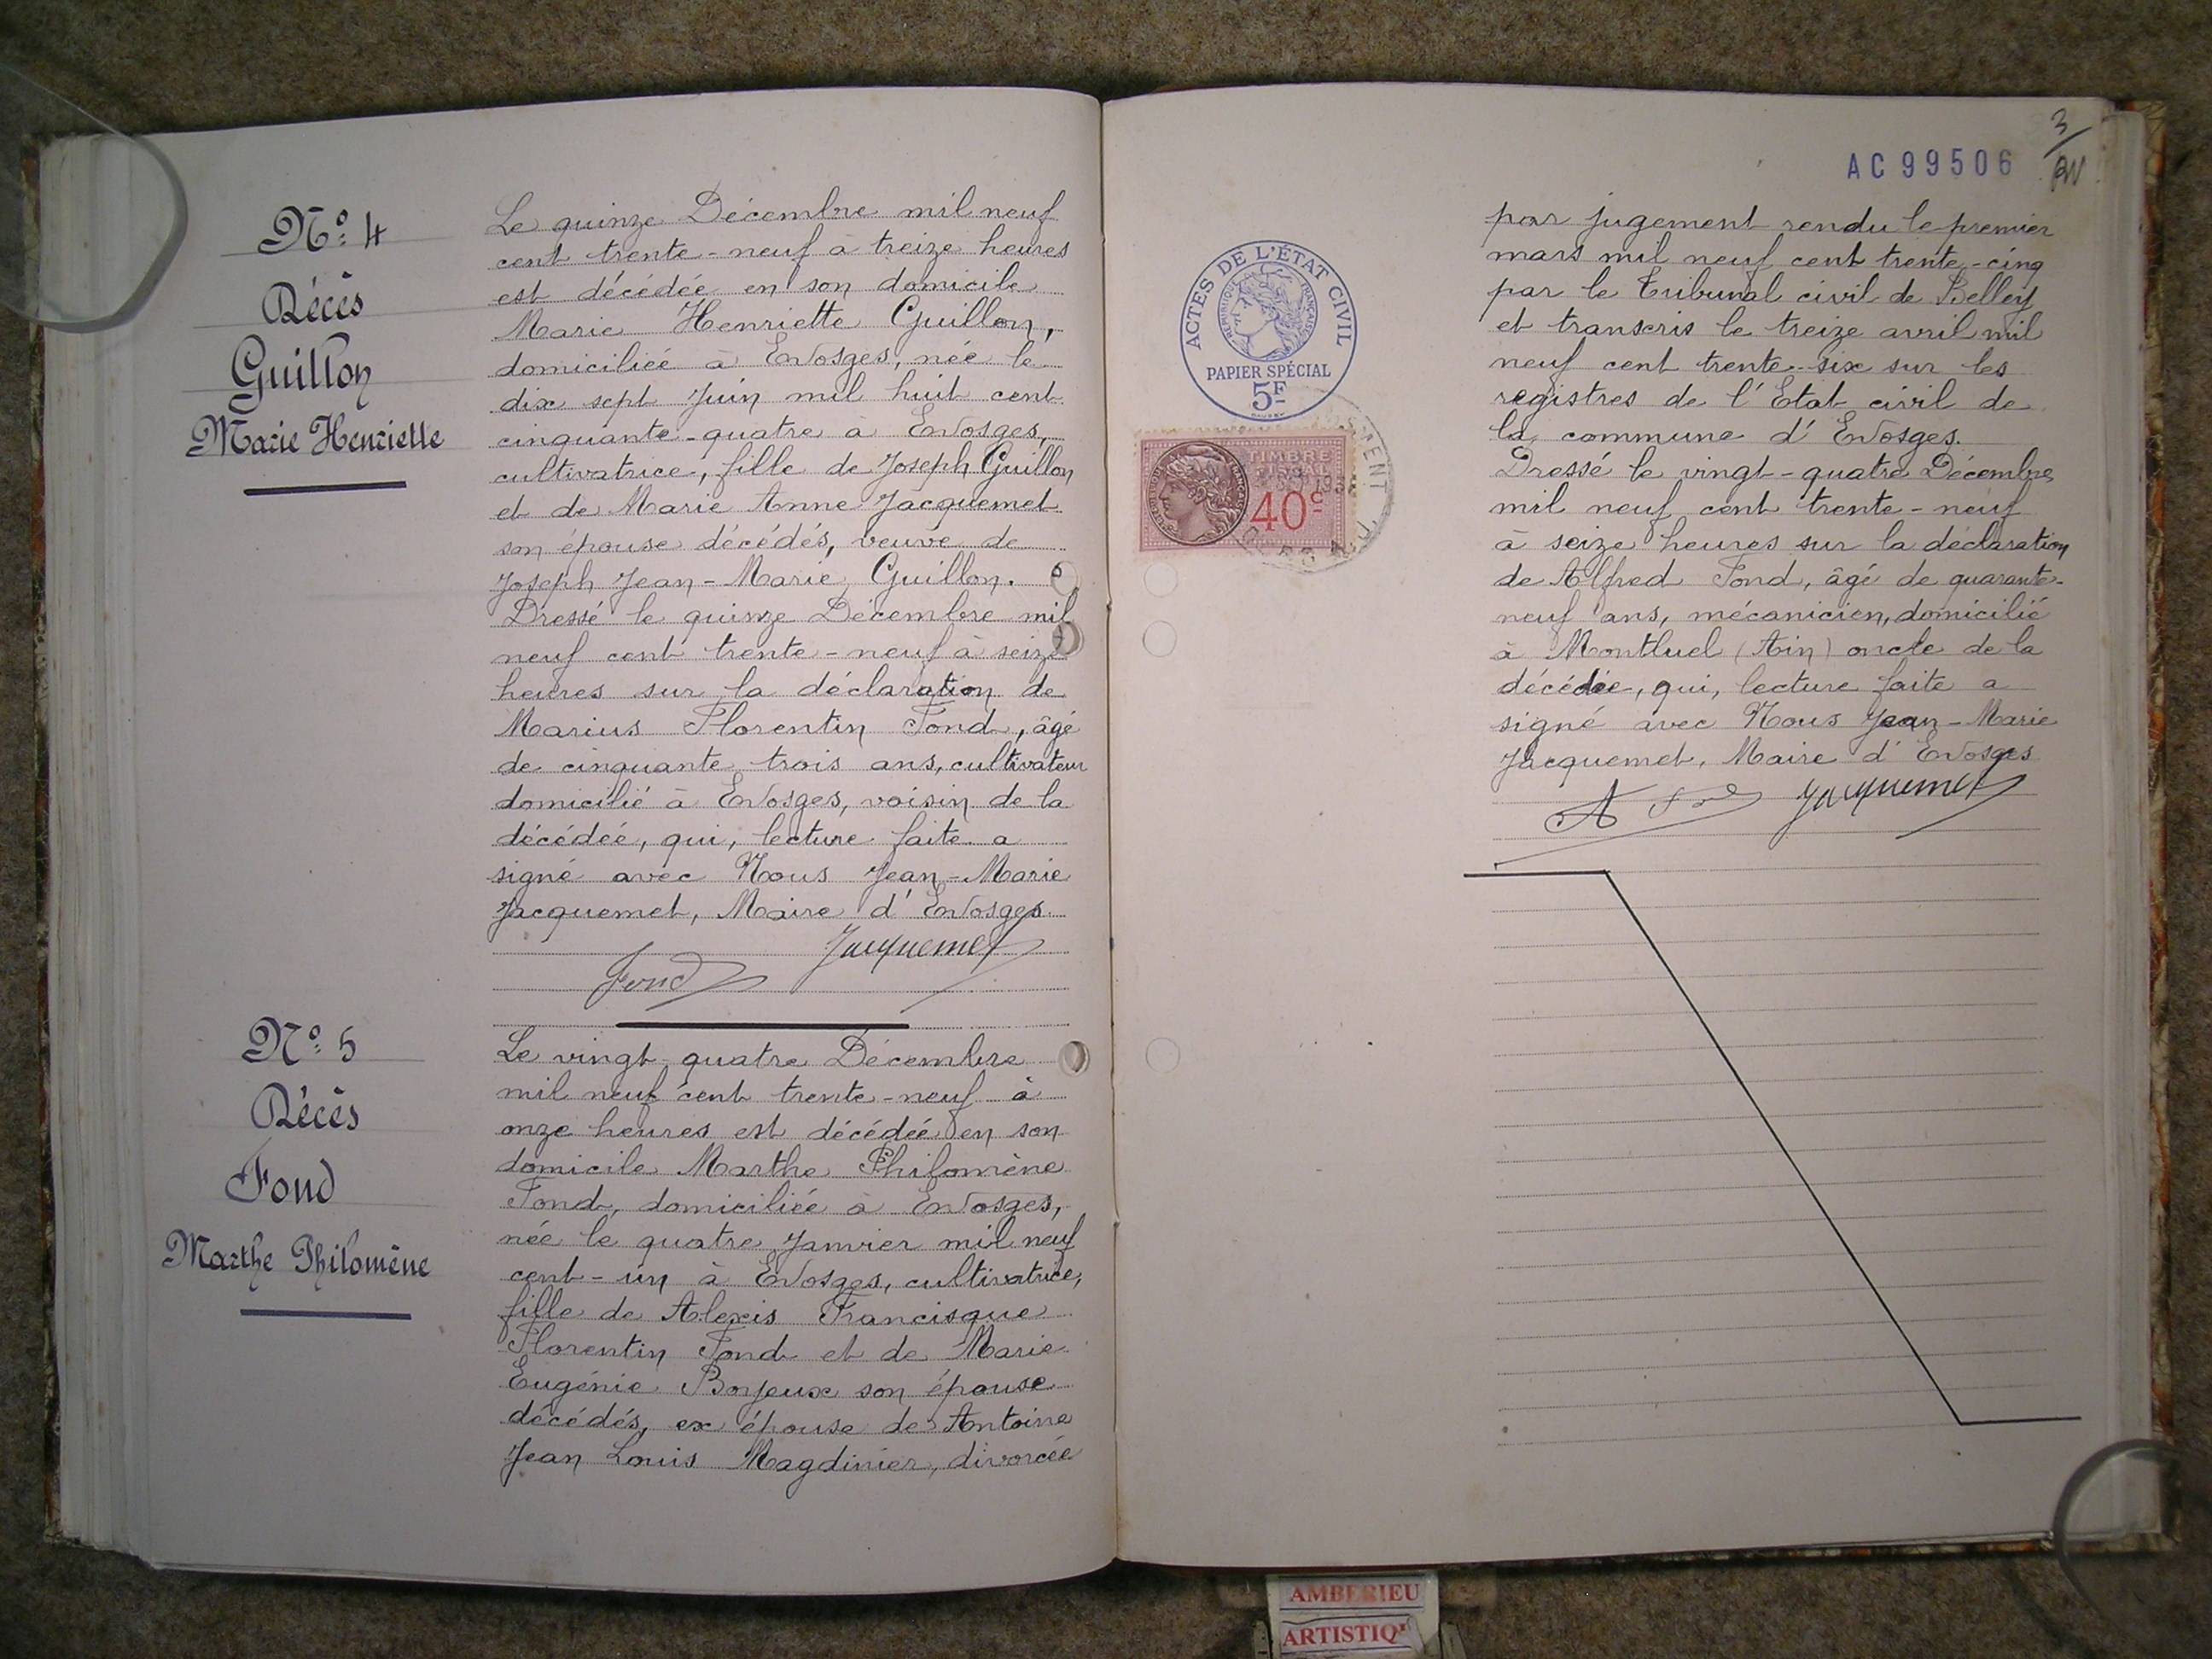 Nº: 4
Décès
Guillon
Marie Henriette
Le quinze Décembre mil neuf
cent trente-neuf à treize heures
est décédée en son domicile
Marie Henriette Guillon,
domiciliée à Evosges, née le
dix sept Juin mil huit cent
cinquante-quatre à Evosges,
cultivatrice, fille de Joseph Guillon
et de Marie Anne Jacquemet
son épouse décédés, veuve de
Joseph Jean-Marie Guillon.
Dressé le quinze Décembre mil
neuf cent trente-neuf à seize
heures sur la déclaration de
Marius Florentin Fond, âgé
de cinquante trois ans, cultivateur
domicilié à Evosges, voisin de la
décédée, qui, lecture faite a
signé avec Nous Jean-Marie
Jacquemet, Maire d'Evosges.
Jacquemet
Fond
Nº: 5
Décès
Fond
Marthe Philomène
Le vingt quatre Décembre
mil neuf cent trente-neuf à
onze heures est décédée en son
domicile Marthe Philomène
Fond, domiciliée à Evosges,
née le quatre Janvier mil neuf
cent-un à Evosges, cultivatrice,
fille de Alexis Francisque
Florentin Fond et de Marie
Eugénie Borjeux son épouse
décédés, ex épouse de Antoine
Jean Louis Magdinier, divorcée
3
AC 99506
ACTES DE L'ÉTAT CIVIL
RÉPUBLIQUE FRANÇAISE
PAPIER SPÉCIAL
5F
TIMBRE
FISCAL
40c
par jugement rendu le premier
mars mil neuf cent trente-cinq
par le Tribunal civil de Belley
et transcris le treize avril mil
neuf cent trente-six sur les
registres de l'Etat civil de
la commune d'Evosges.
Dressé le vingt-quatre Décembre
mil neuf cent trente-neuf
à seize heures sur la déclaration
de Alfred Fond, âgé de quarante-
neuf ans, mécanicien, domicilié
à Montluel (Ain) oncle de la
décédée, qui, lecture faite a
signé avec Nous Jean-Marie
Jacquemet, Maire d'Evosges
A Fond Jacquemet
AMBERIEU
ARTISTIQ